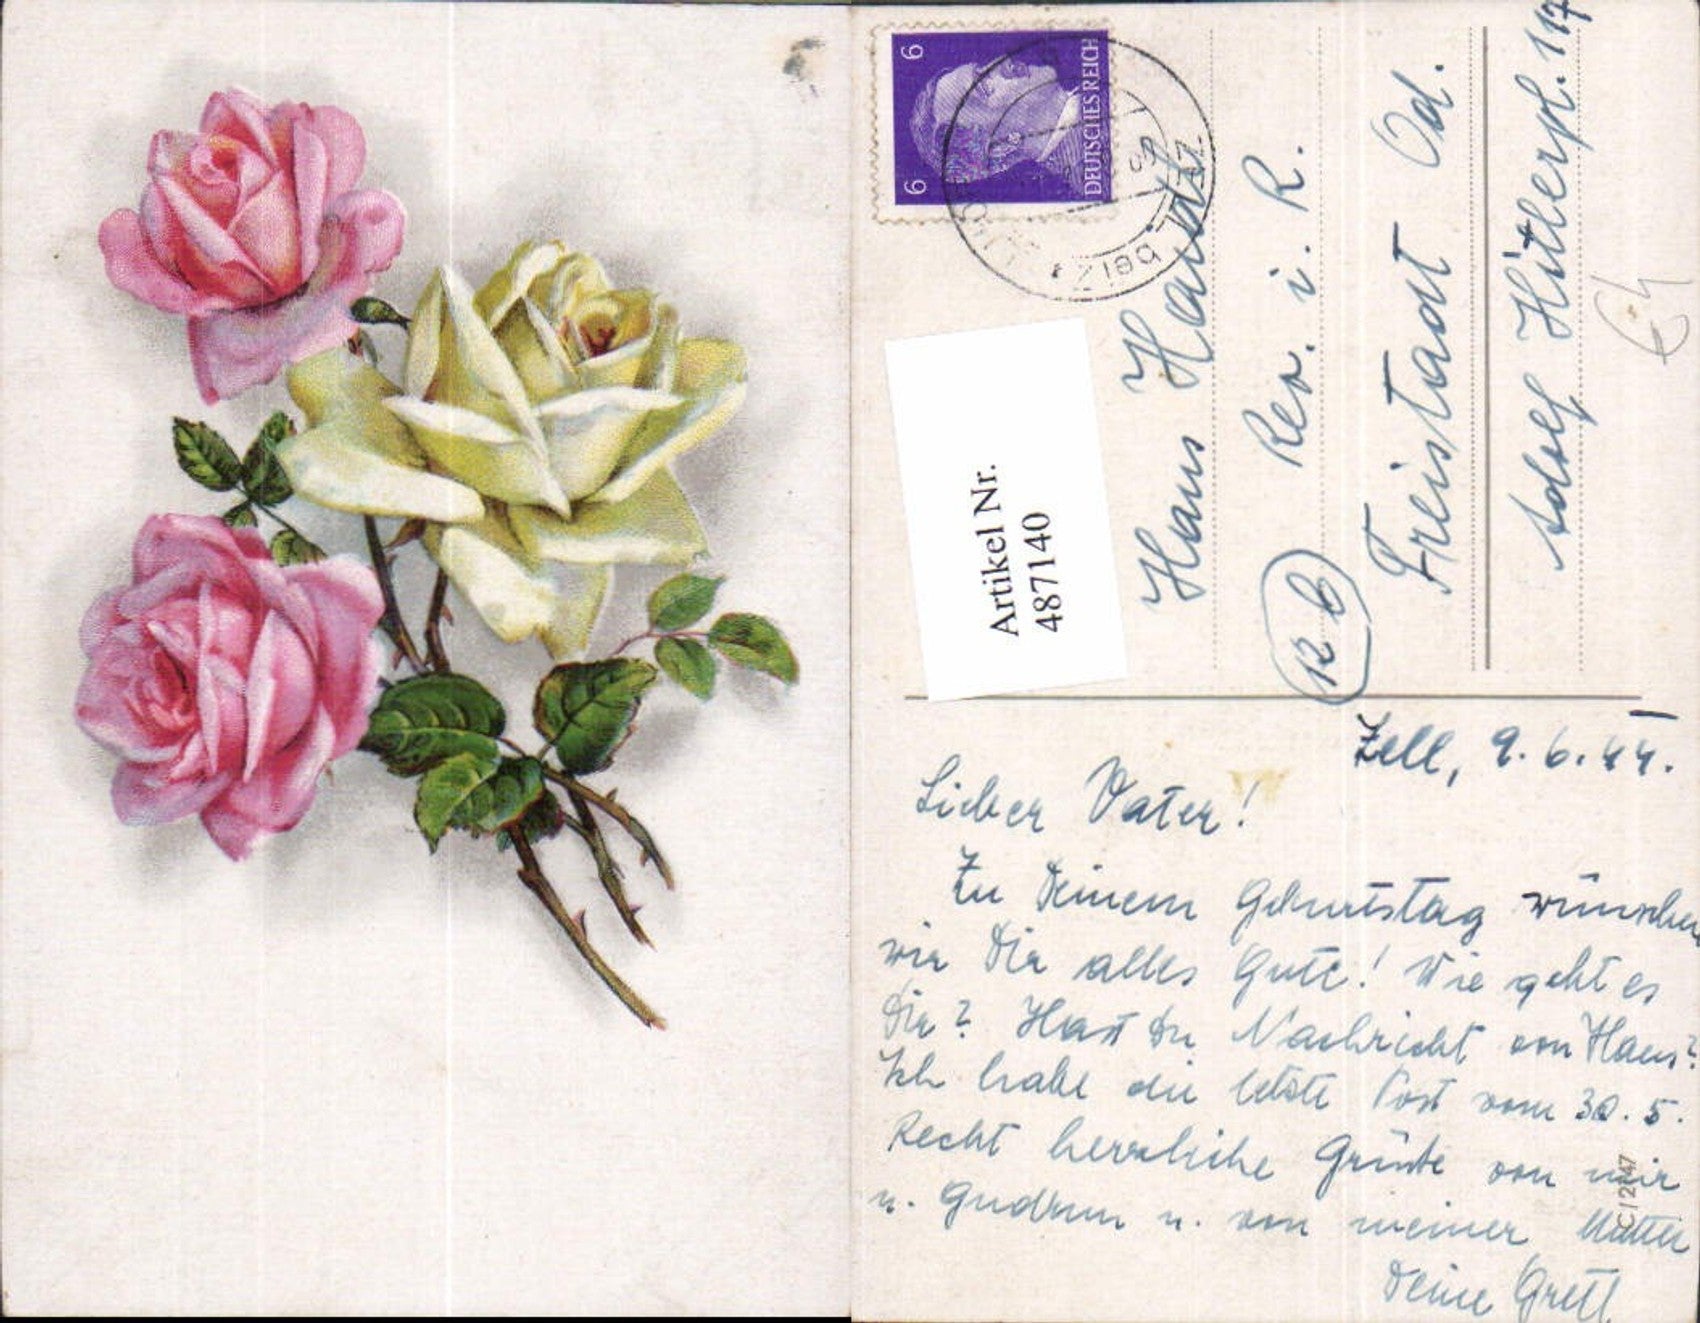 6 6
DEUTSCHES REICH
bei Linz
Artikel Nr.
487140
Hans
Rev. i. R.
12 b
Freistadt Od.
Adolf Hitlerpl. 17
Zell, 9.6.44.
Lieber Vater!
Zu Deinem Geburtstag wünschen
wir Dir alles Gute! Wie geht es
Dir? Hast Du Nachricht von Hans?
Ich habe die letzte Post vom 30.5.
Recht herzliche Grüße von mir
u. Gudrun u. von meiner Mutter
Deine Gretl
C12147